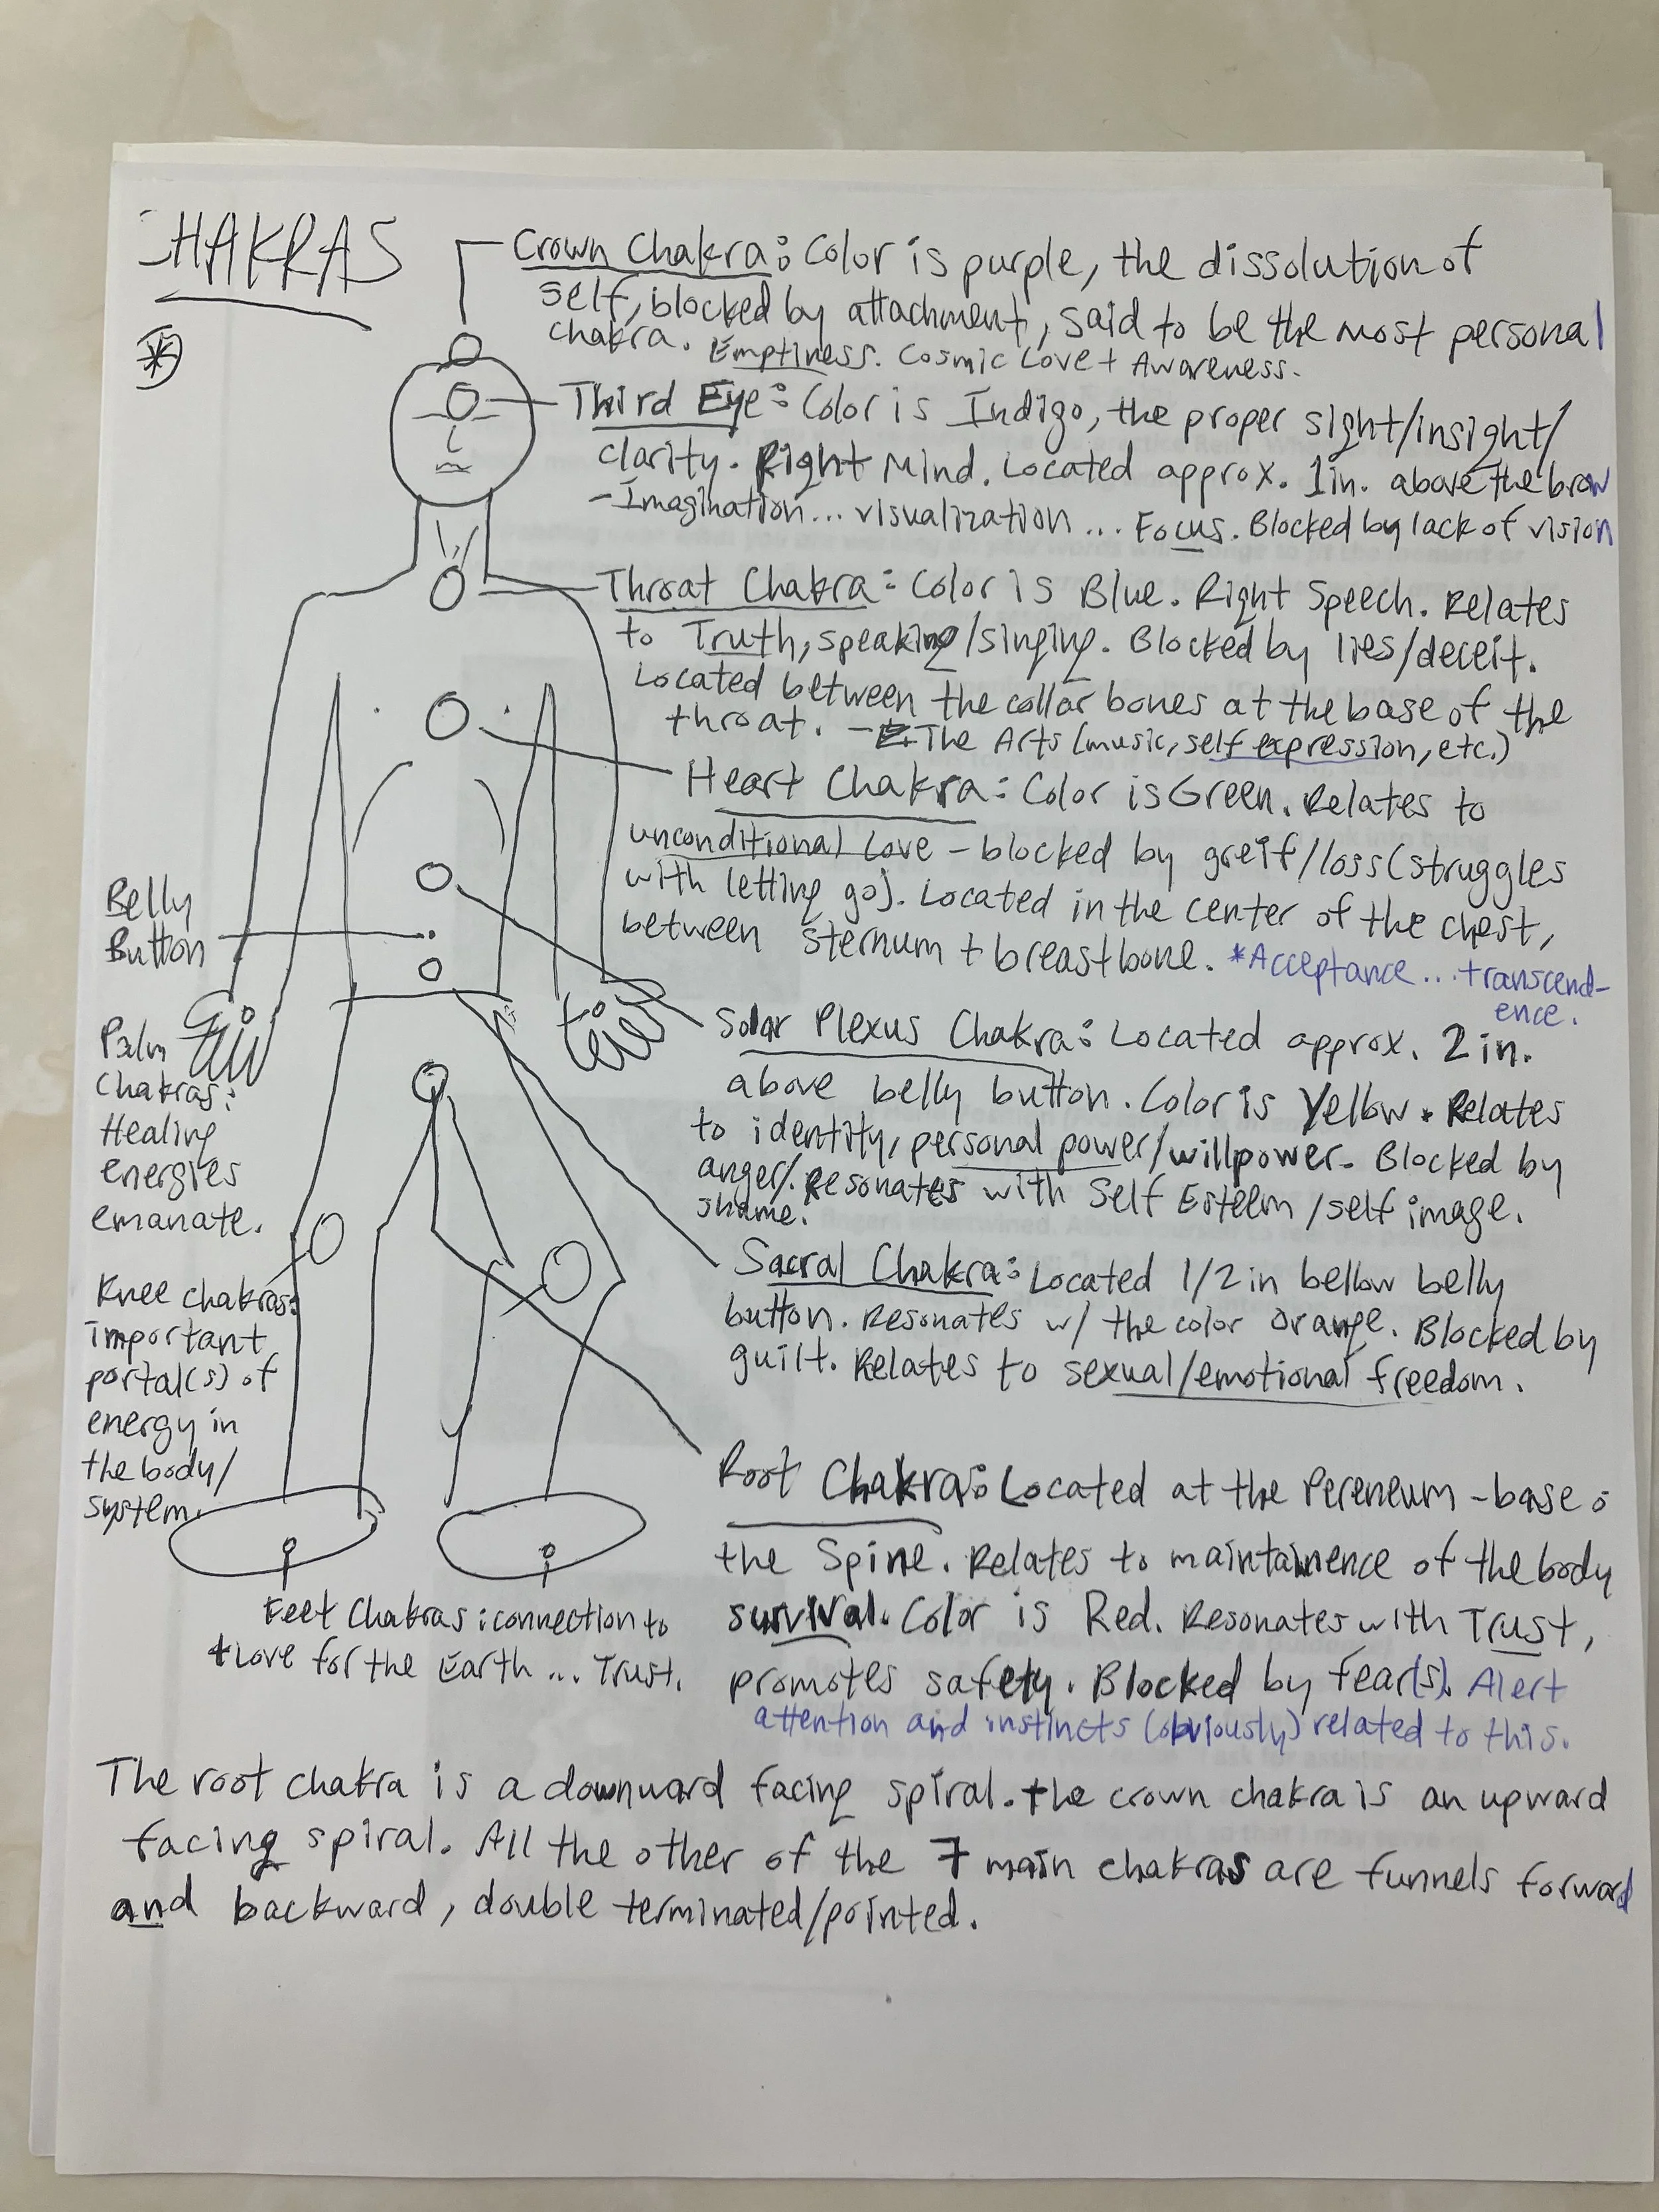 CHAKRAS
Crown Chakra: Color is purple, the dissolution of
self, blocked by attachment, said to be the most personal
chakra. Emptiness. Cosmic Love + Awareness.
Third Eye: Color is Indigo, the proper sight/insight/
clarity. Right Mind. Located approx. 1in. above the brow
- Imagination... visualization... Focus. Blocked by lack of vision
Throat Chakra: Color is Blue. Right Speech. Relates
to Truth, speaking/singing. Blocked by lies/deceit.
Located between the collar bones at the base of the
throat. - The Arts (music, self expression, etc.)
Heart Chakra: Color is Green. Relates to
unconditional Love - blocked by greif/loss (struggles
with letting go). Located in the center of the chest,
between sternum + breastbone. *Acceptance... transcend-
ence.
Belly
Button
Solar Plexus Chakra: Located approx. 2 in.
above belly button. Color is Yellow. Relates
to identity, personal power/willpower. Blocked by
anger/. Resonates with Self Esteem/self image.
shame.
Palm
Chakras:
Healing
energies
emanate.
Sacral Chakra: Located 1/2 in bellow belly
button. Resonates w/ the color orange. Blocked by
guilt. Relates to sexual/emotional freedom.
Knee chakras:
important
portal(s) of
energy in
the body/
system.
Root Chakra: Located at the Pereneum - base o
the Spine. Relates to maintainence of the body
survival. Color is Red. Resonates with Trust,
promotes safety. Blocked by fear(s). Alert
attention and instincts (obviously) related to this.
Feet Chakras: connection to
+ Love for the Earth... Trust.
The root chakra is a downward facing spiral. the crown chakra is an upward
facing spiral. All the other of the 7 main chakras are funnels forward
and backward, double terminated/pointed.